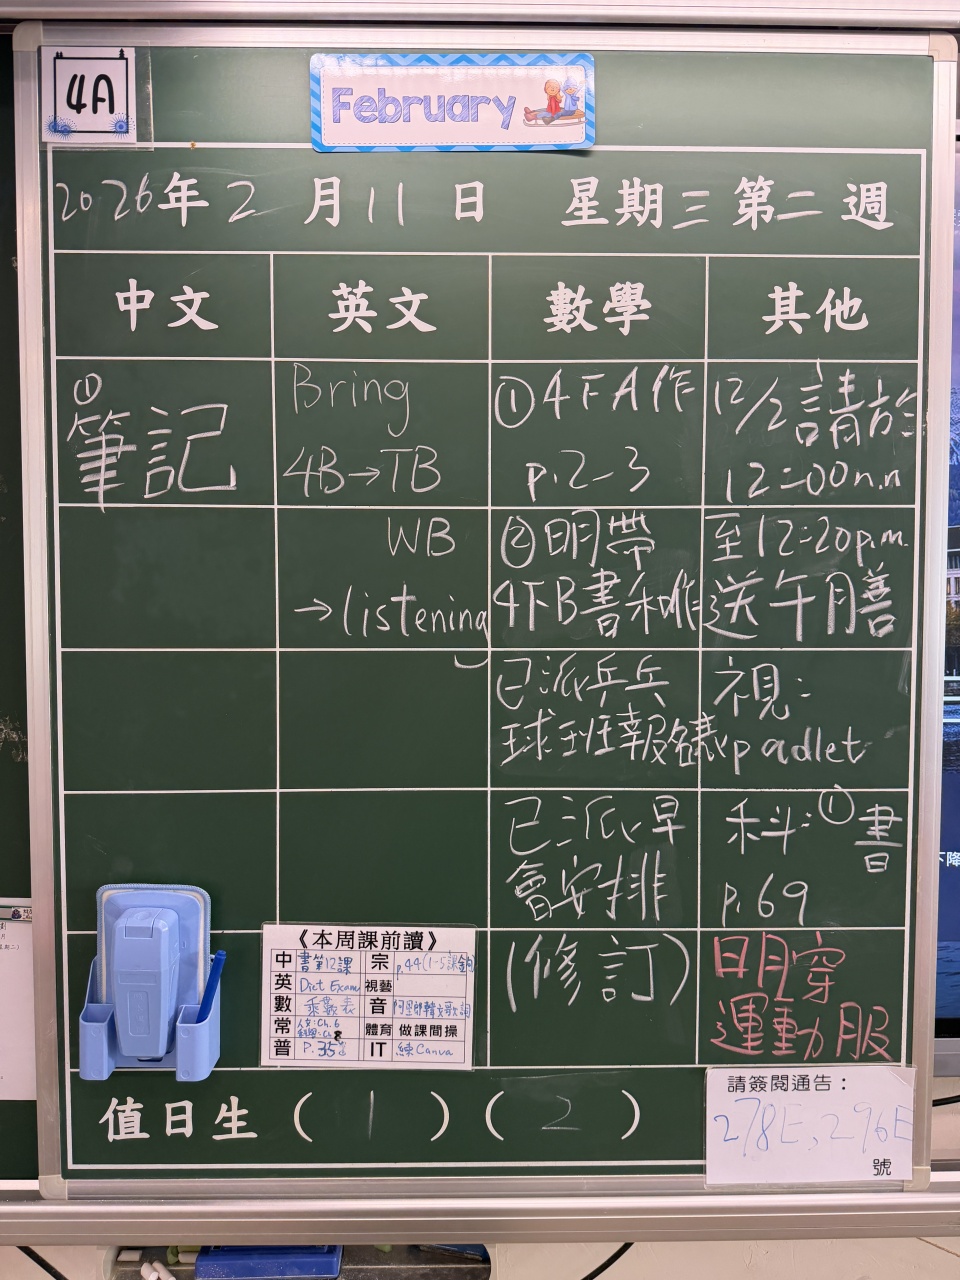 4A
February
2026年2月11日 星期三第二週
中文
英文
數學
其他
①
筆記
Bring
4B→TB
WB
→listening
①4下A作
p.2-3
②明帶
4下B書和作
已派乒乓
球班報名表
已派早
會安排
(修訂)
12/2請於
12:00n.n
至12:20p.m.
送午膳
視:
padlet
科:①書
p.69
明穿
運動服
《本周課前讀》
中 書第12課
宗 p.44(1-5課金句)
英 Dict Exam
視藝
數 乘數表
音 阿里郎韓文歌詞
常 人文:Ch.6
科學:Ch.8
體育 做課間操
普 P.35
IT 練Canva
值日生(1)(2)
請簽閱通告:
278E、296E
號